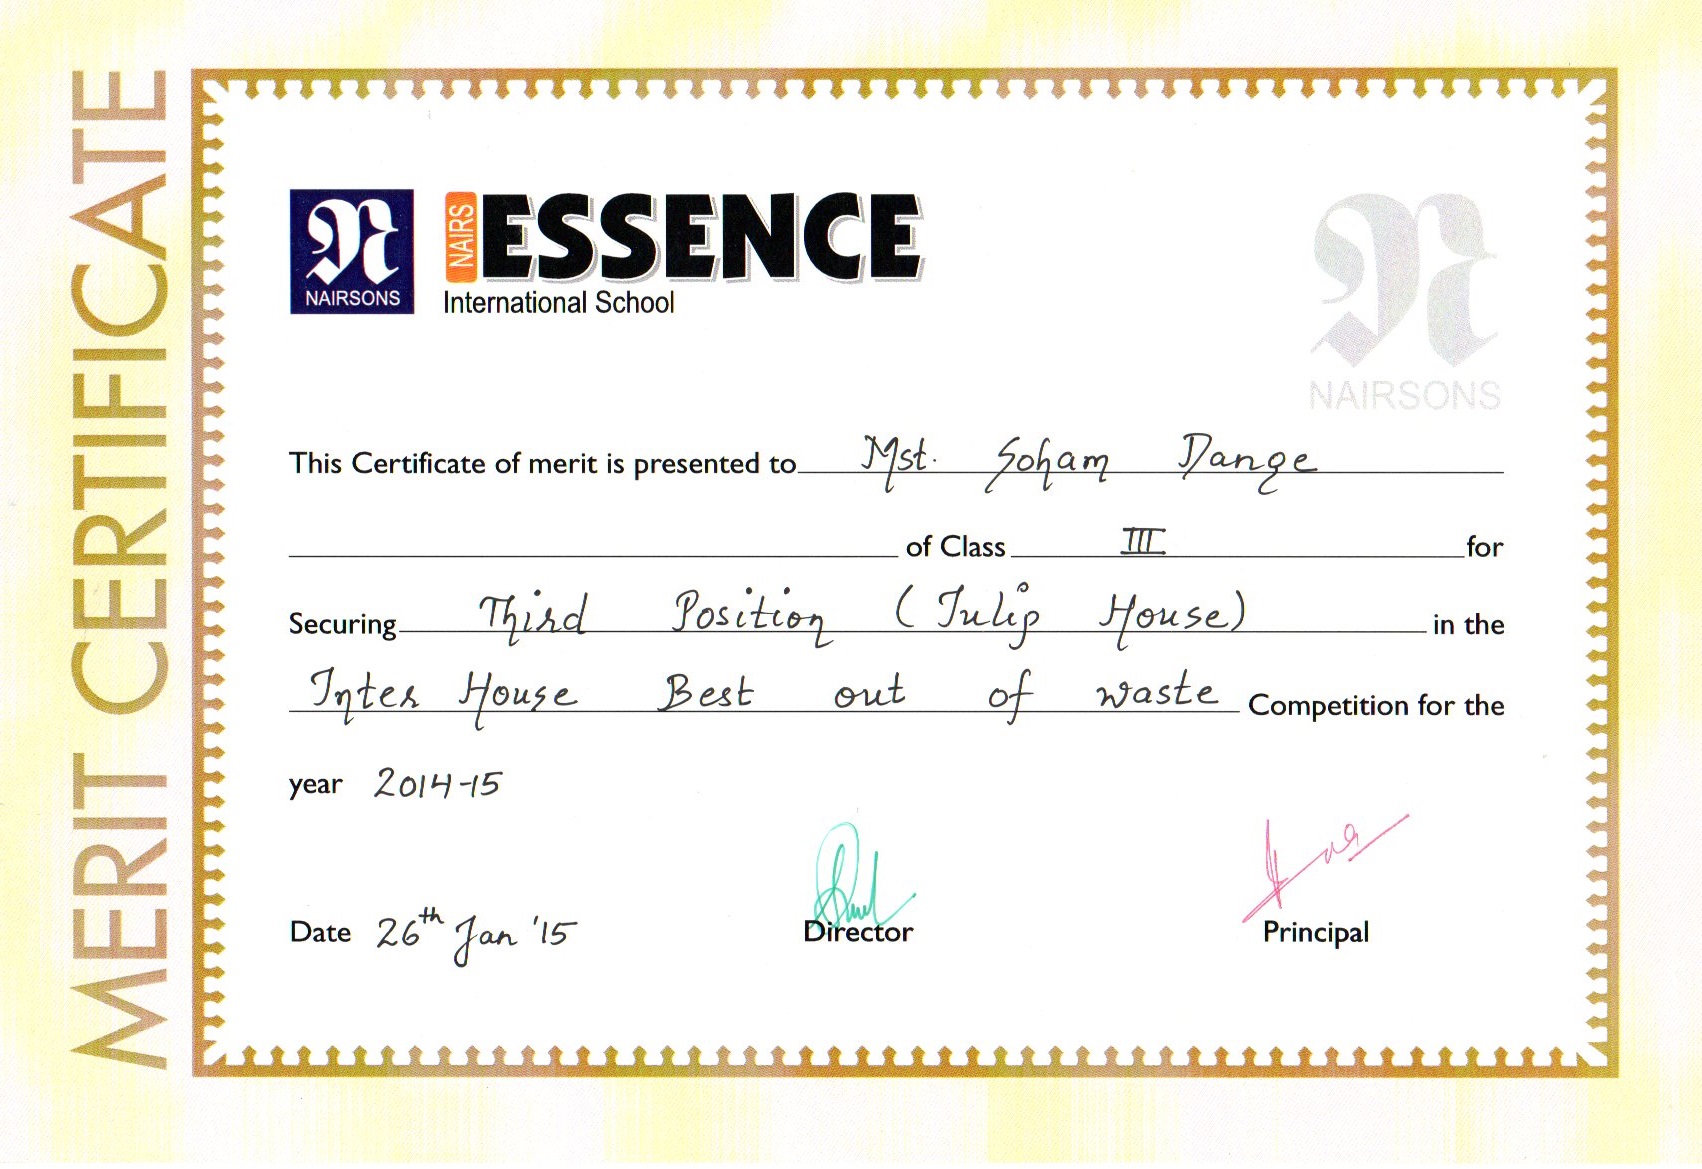 MERIT CERTIFICATE
NAIRSONS
NAIRS ESSENCE
International School
NAIRSONS
This Certificate of merit is presented to Mst. Soham Dange
of Class III for
Securing Third Position (Tulip House) in the
Inter House Best out of waste Competition for the
year 2014-15
Date 26th Jan '15
Director
Principal